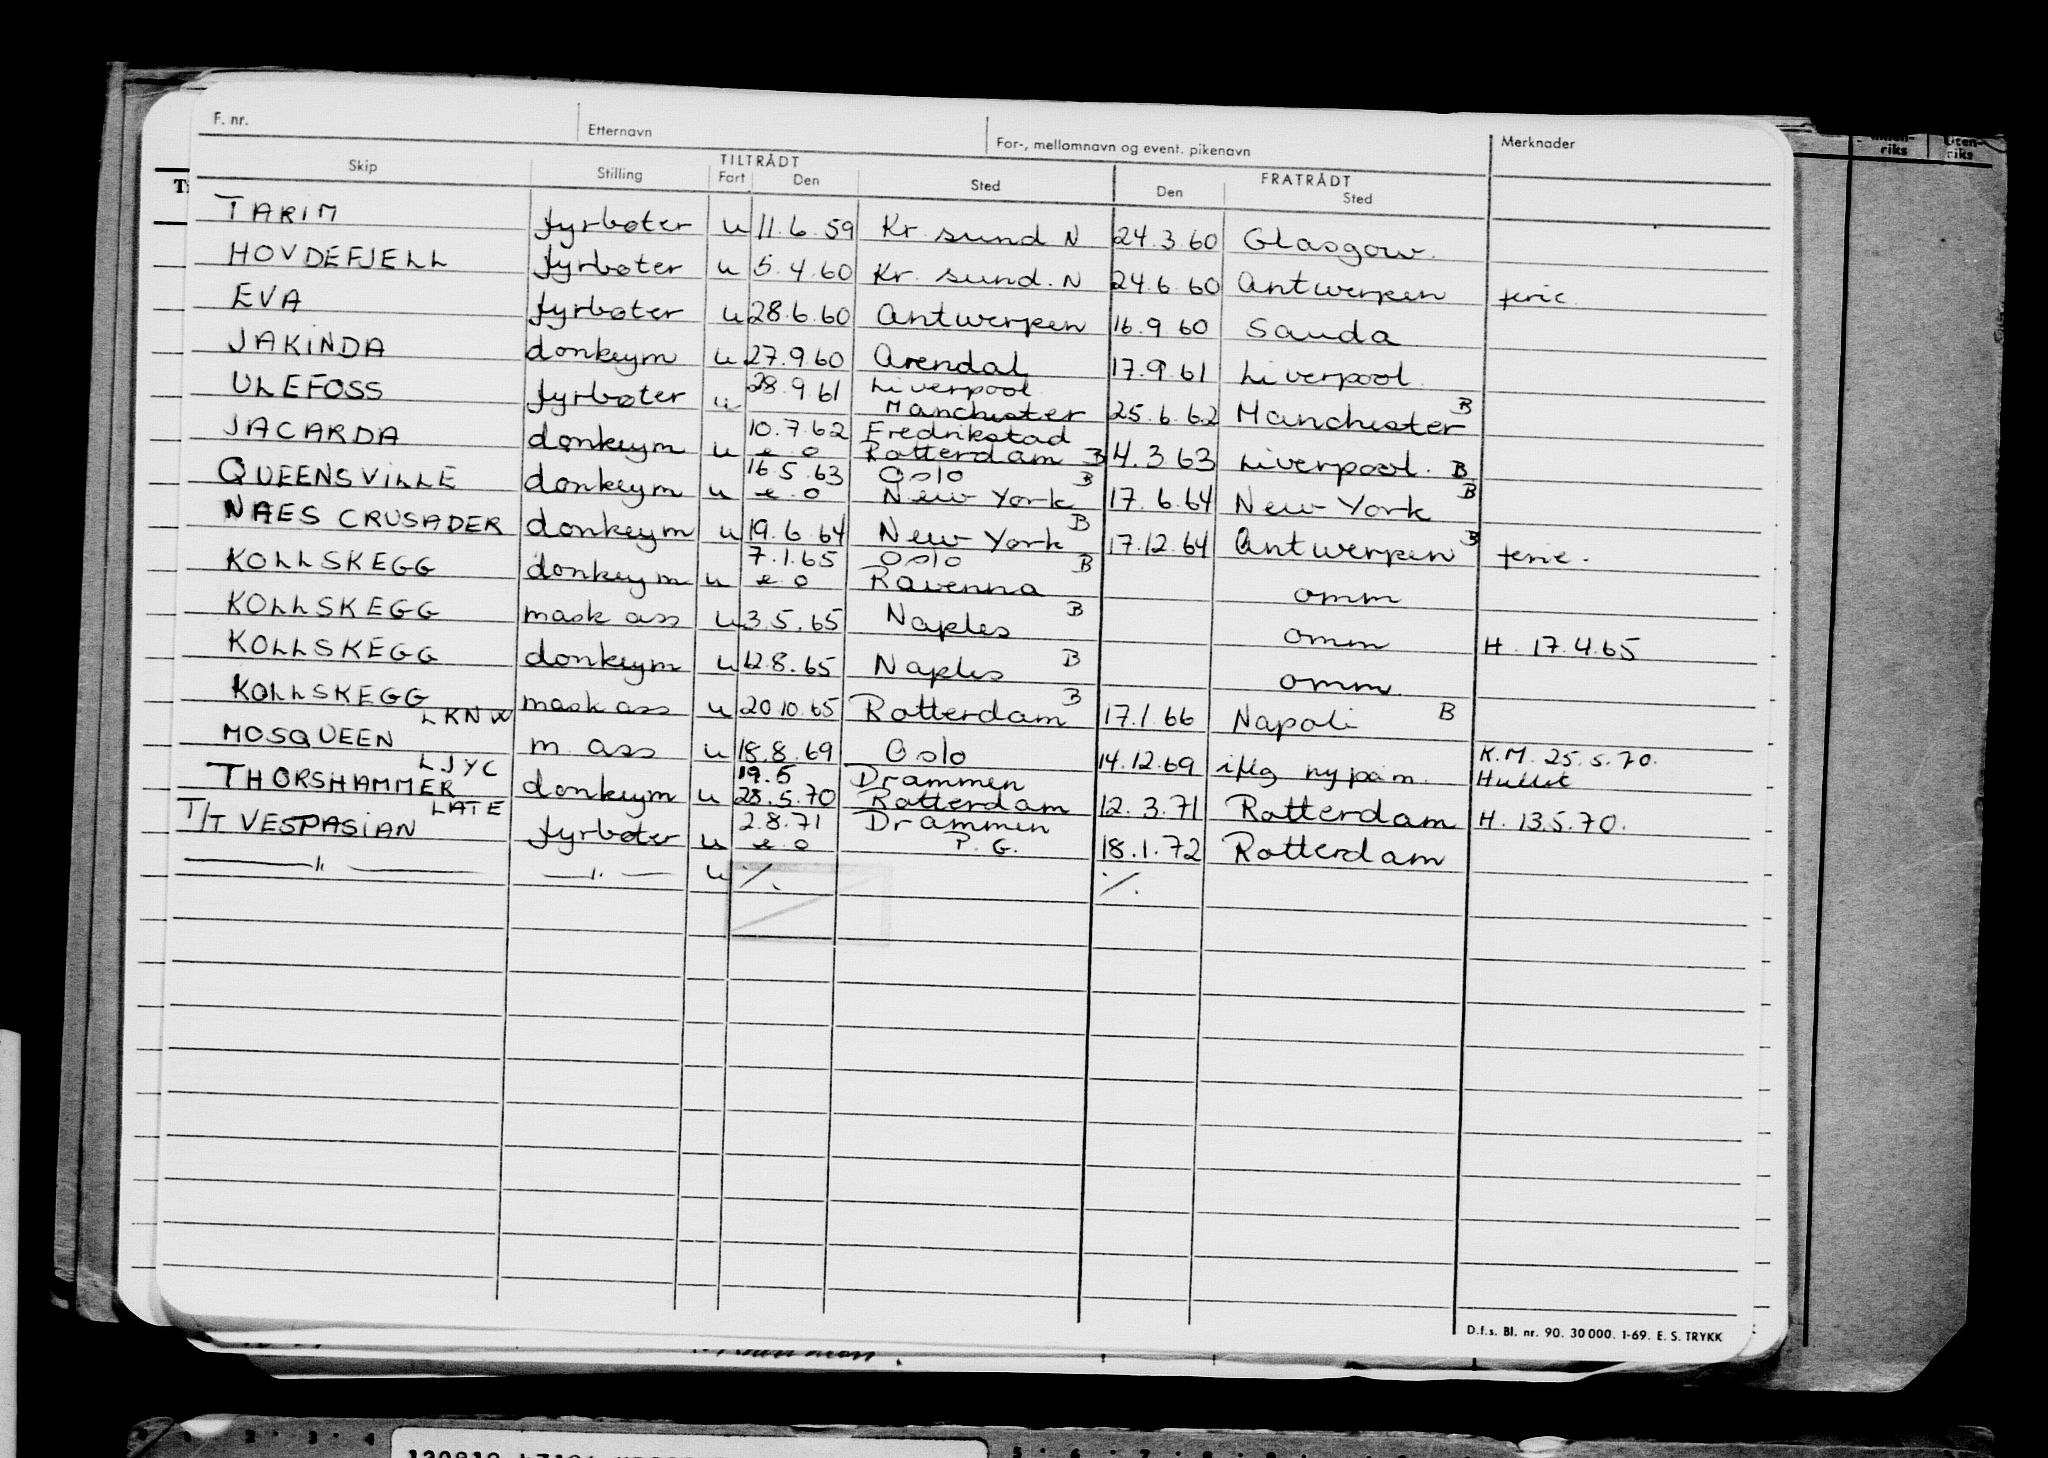 F. nr. Etternavn For-, mellomnavn og event. pikenavn Merknader
TILTRÅDT FRATRÅDT
Skip Stilling Fart Den Sted Den Sted
TARIM fyrbøter u 11.6.59 Kr. sund N 24.3.60 Glasgow.
HOVDEFJELL fyrbøter u 5.4.60 Kr. sund. N 24.6.60 Antwerpen ferie.
EVA fyrbøter u 28.6.60 Antwerpen 16.9.60 Sauda
JAKINDA donkeym u 27.9.60 Arendal 17.9.61 Liverpool.
ULEFOSS fyrbøter u 28.9.61 Liverpool
Manchester 25.6.62 Manchester B
JACARDA donkeym u 10.7.62 Fredrikstad
e.o Rotterdam B 4.3.63 Liverpool. B
QUEENSVILLE donkeym u 16.5.63 Oslo B
e.o New York 17.6.64 New York B
NAES CRUSADER donkeym u 19.6.64 New York B 17.12.64 Antwerpen B ferie.
KOLLSKEGG donkeym u 7.1.65 Oslo B
e.o Ravenna omm
KOLLSKEGG mask ass u 3.5.65 Naples B omm H. 17.4.65
KOLLSKEGG donkeym u 12.8.65 Naples B omm.
KOLLSKEGG mask ass u 20.10.65 Rotterdam B 17.1.66 Napoli B
LKNW
MOSQUEEN m. ass u 18.8.69 Oslo 14.12.69 iflg nypåm. K.M. 25.5.70.
LJYC
THORSHAMMER donkeym u 19.5 Drammen
28.5.70 Rotterdam 12.3.71 Rotterdam H. 13.5.70.
LATE
T/T VESPASIAN fyrbøter u 2.8.71 Drammen
e.o P.G. 18.1.72 Rotterdam
—〃— —〃— u ./. ./.
D.f.s. Bl. nr. 90. 30 000. 1-69. E. S. TRYKK